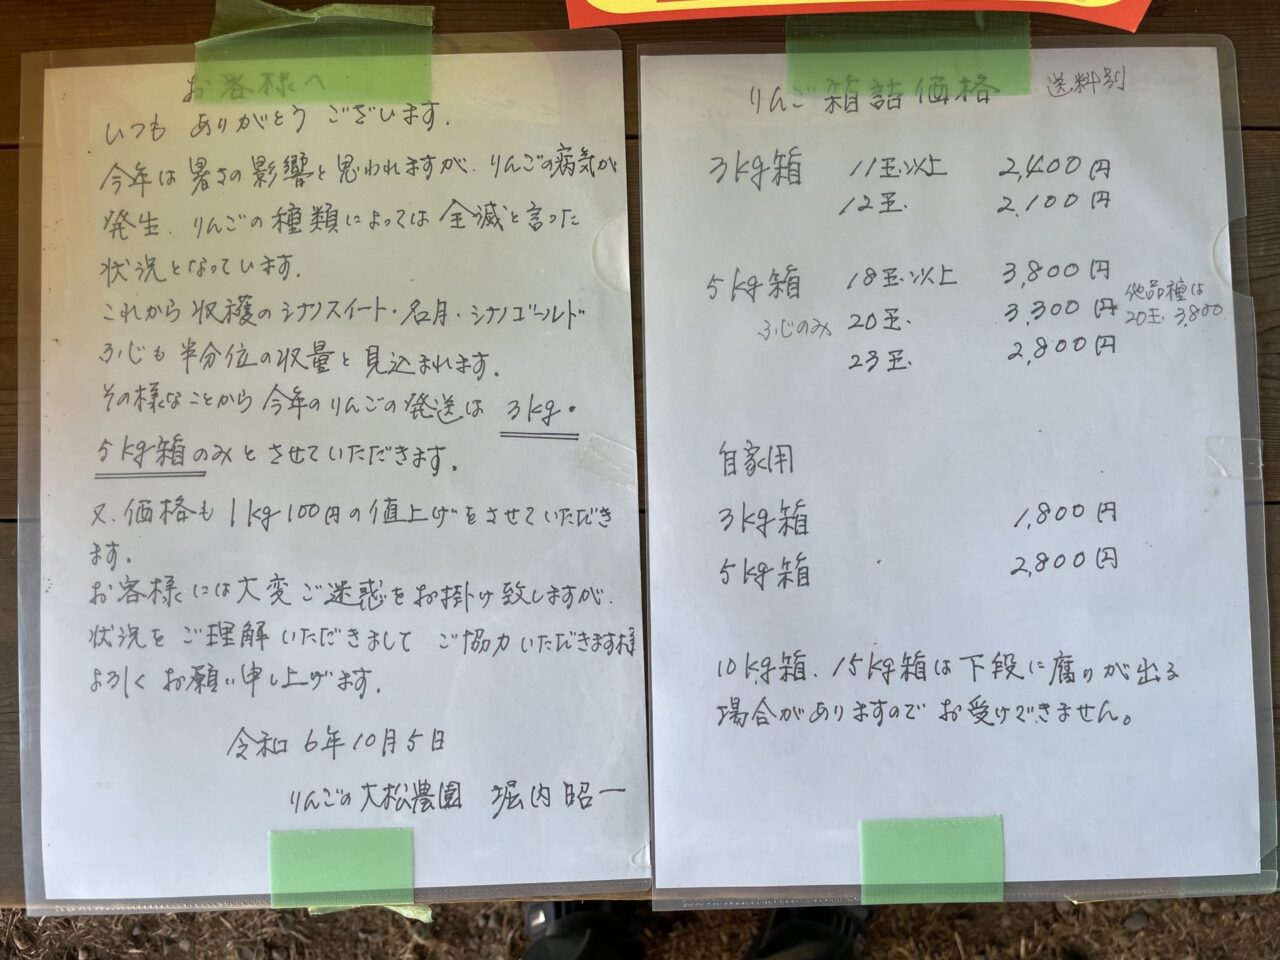 お客様へ
いつも ありがとう ございます.
今年は暑さの影響と思われますが. りんごの病気が
発生. りんごの種類によっては全滅と言った
状況となっています.
これから収穫のシナノスイート・名月・シナノゴールド
ふじも半分位の収量と見込まれます.
その様なことから今年のりんごの発送は 3kg・
5kg箱のみとさせていただきます.
又. 価格も1kg100円の値上げをさせていただき
ます.
お客様には大変ご迷惑をお掛け致しますが.
状況をご理解いただきまして ご協力いただきます様
よろしくお願い申し上げます.
令和6年10月5日
りんごの大松農園 堀内昭一
りんご箱詰価格 送料別
3kg箱 11玉以上 2,400円
12玉. 2,100円
5kg箱 18玉以上 3,800円
ふじのみ 20玉. 3,300円 他品種は
20玉 3,800
23玉. 2,800円
自家用
3kg箱 1,800円
5kg箱 2,800円
10kg箱. 15kg箱は下段に腐りが出る
場合がありますのでお受けできません。